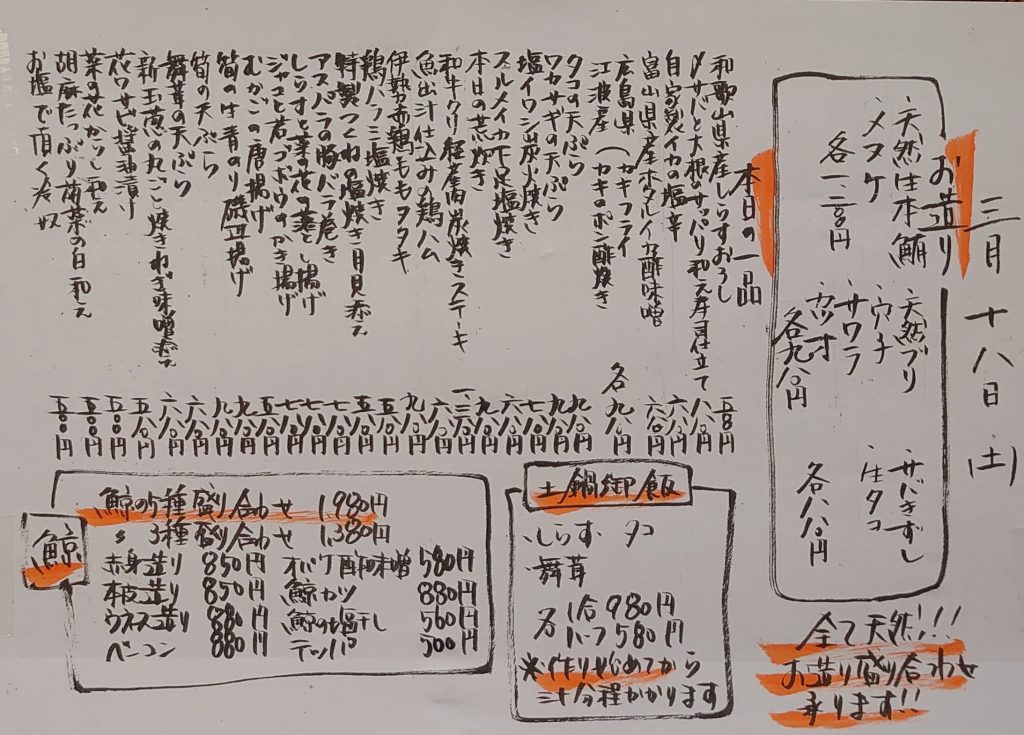 三月十八日(土)
お造り
・天然生本鮪
・メヌケ
各一、二八〇円
・天然ブリ
・ウナ
・サワラ
・カツオ
各九八〇円
・サバきずし
・生タコ
各八八〇円
全て天然!!!
お造り盛り合わせ
承ります!!
本日の一品
和歌山県産しらすおろし 五八〇円
〆サバと大根のサッパリ和え寿司仕立て 八八〇円
自家製イカの塩辛 六八〇円
富山県産ホタルイカ酢味噌 六八〇円
広島県(カキフライ
江波産(カキのポン酢焼き
各九八〇円
タコの天ぷら 九八〇円
ワカサギの天ぷら 九八〇円
塩イワシ炭火焼き 七八〇円
スルメイカ下足塩焼き 六八〇円
本日の荒炊き 九八〇円
和牛クリ 経産肉炭焼きステーキ 一、三八〇円
魚出汁仕込みの鶏ハム 六八〇円
伊勢赤鶏ももタタキ 九八〇円
鶏バラ三塩焼き 五八〇円
特製つくねの塩焼き月見添え 五八〇円
アスパラの豚バラ巻き 七八〇円
しらすと菜の花の落とし揚げ 七八〇円
ジャコと若ゴボウのかき揚げ 七八〇円
むかごの唐揚げ 五八〇円
筍の生青のり磯辺揚げ 九八〇円
筍の天ぷら 九八〇円
舞茸の天ぷら 六八〇円
新玉葱の丸ごと焼きねぎ味噌添え 六八〇円
花ワサビ醤油漬け 五八〇円
菜の花からし和え 五〇〇円
胡麻たっぷり菊菜の白和え 五〇〇円
お塩で頂く冷奴 五八〇円
土鍋御飯
・しらす ・タコ
・舞茸
各 1合 980円
ハーフ 580円
※作り始めてから
三十分程かかります
鯨
鯨の5種盛り合わせ 1,980円
〃 3種盛り合わせ 1,380円
赤身造り 850円 オバケ酢味噌 580円
本皮造り 850円 鯨カツ 880円
ウネス造り 880円 鯨の塩干し 560円
ベーコン 880円 テッパ 500円